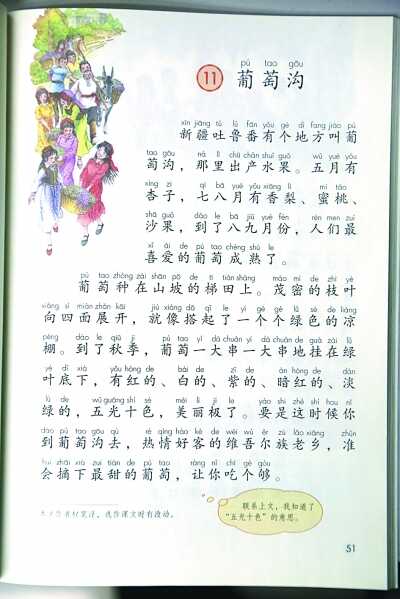 pú tao gōu
11 葡萄沟
xīn jiāng tǔ lǔ fān yǒu gè dì fang jiào pú
新疆吐鲁番有个地方叫葡
tao gōu nà lǐ chū chǎn shuǐ guǒ wǔ yuè yǒu
萄沟，那里出产水果。五月有
xìng zi qī bā yuè yǒu xiāng lí mì táo
杏子，七八月有香梨、蜜桃、
shā guǒ dào le bā jiǔ yuè fèn rén men zuì
沙果，到了八九月份，人们最
xǐ ài de pú tao chéng shú le
喜爱的葡萄成熟了。
pú tao zhòng zài shān pō de tī tián shàng mào mì de zhī yè
葡萄种在山坡的梯田上。茂密的枝叶
xiàng sì miàn zhǎn kāi jiù xiàng dā qǐ le yí gè gè lǜ sè de liáng
向四面展开，就像搭起了一个个绿色的凉
péng dào le qiū jì pú tao yí dà chuàn yí dà chuàn de guà zài lǜ
棚。到了秋季，葡萄一大串一大串地挂在绿
yè dǐ xià yǒu hóng de bái de zǐ de àn hóng de dàn
叶底下，有红的、白的、紫的、暗红的、淡
lǜ de wǔ guāng shí sè měi lì jí le yào shi zhè shí hou nǐ
绿的，五光十色，美丽极了。要是这时候你
dào pú tao gōu qù rè qíng hào kè de wéi wú ěr zú lǎo xiāng zhǔn
到葡萄沟去，热情好客的维吾尔族老乡，准
huì zhāi xià zuì tián de pú tao ràng nǐ chī gè gòu
会摘下最甜的葡萄，让你吃个够。
联系上文，我知道了
“五光十色”的意思。
选作课文时有改动。
51